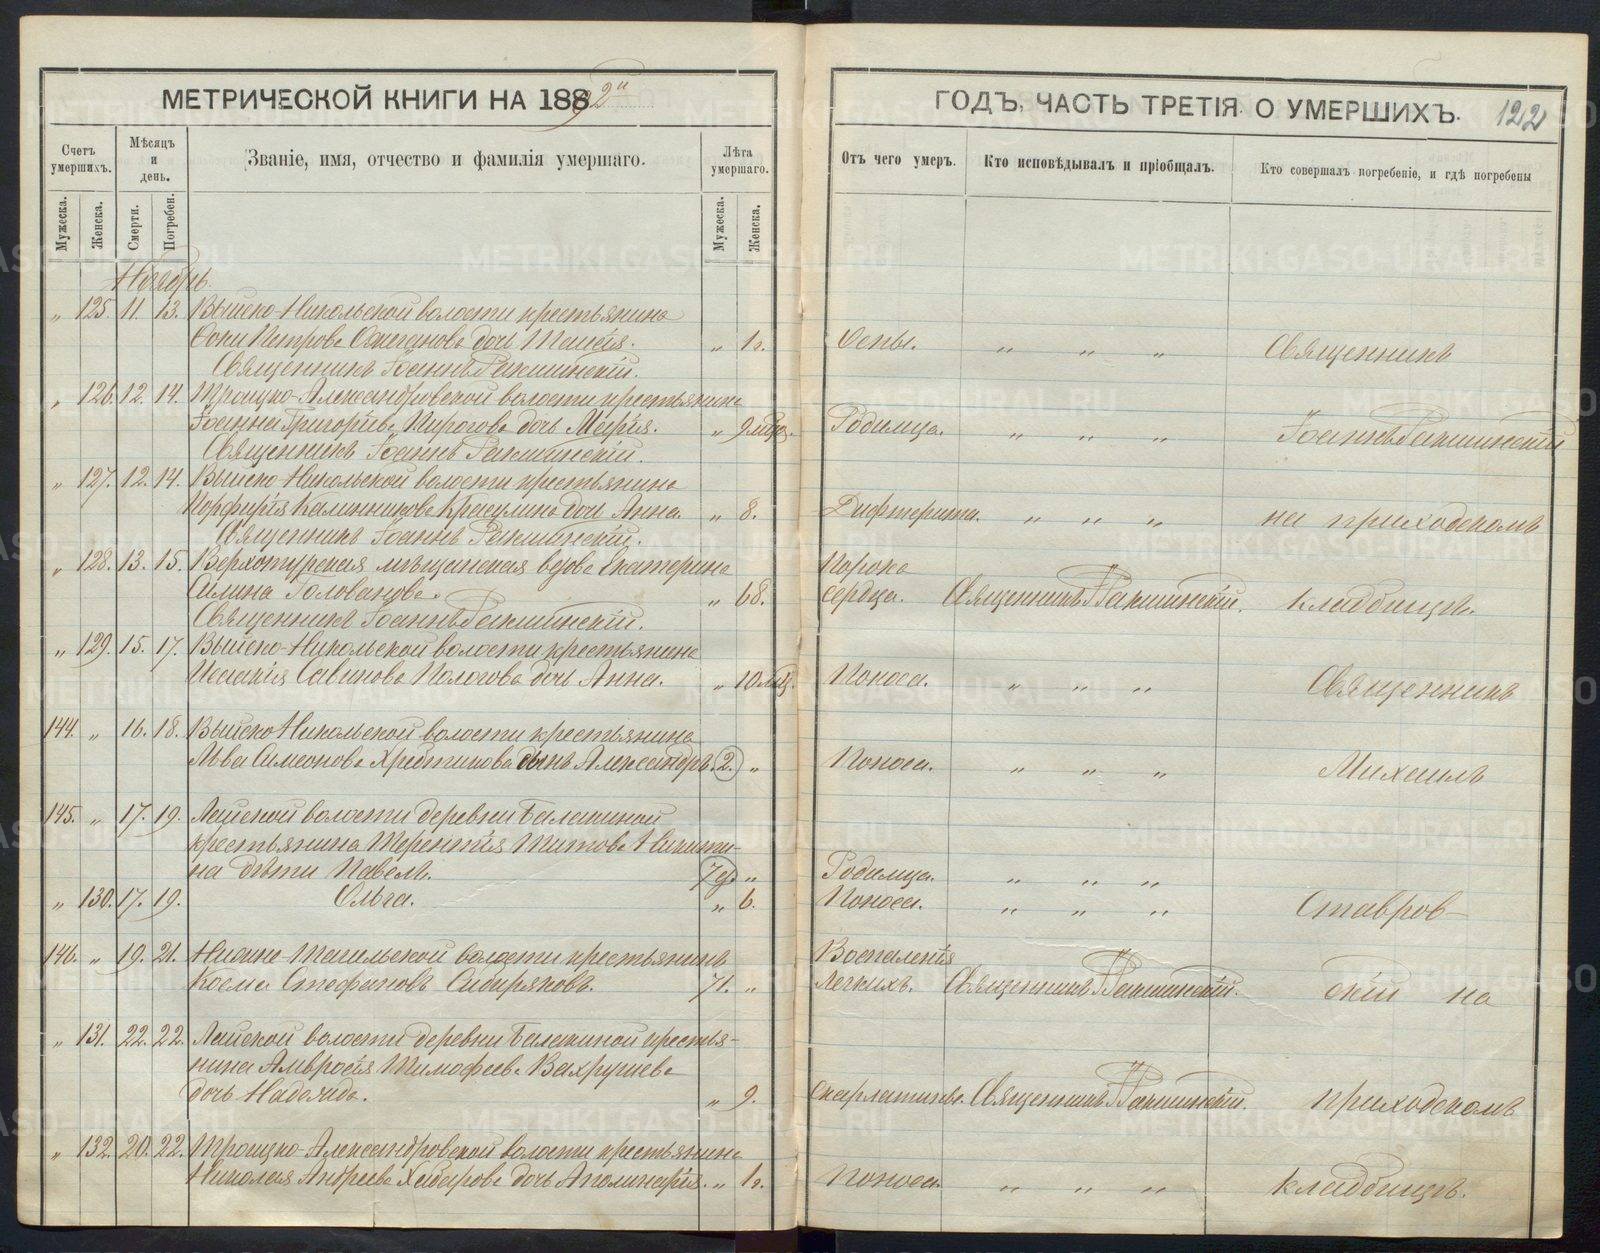 МЕТРИЧЕСКОЙ КНИГИ НА 1892й
ГОДЪ, ЧАСТЬ ТРЕТІЯ О УМЕРШИХЪ. 122
Счетъ умершихъ.
Мѣсяцъ и день.
Званіе, имя, отчество и фамилія умершаго.
Лѣта умершаго.
Отъ чего умеръ.
Кто исповѣдывалъ и пріобщалъ.
Кто совершалъ погребеніе, и гдѣ погребены
Мужеска. Женска. Смерти. Погребен. Мужеска. Женска.
Ноябрь.
„ 125. 11. 13. Выйско-Никольской волости крестьянина
Петрова дочь Таисія. „ 1г. Оспы. „ „ „ Священникъ
Священникъ Іоаннъ
„ 126. 12. 14. Троицко-Александровской волости крестьянина
Іоанна Григорьева Пирогова дочь Марія. „ 9 мѣс. Родимца. „ „ „ Іоаннъ
Священникъ Іоаннъ
„ 127. 12. 14. Выйско-Никольской волости крестьянина
Порфирія Калинникова Красулина дочь Анна. „ 8. Дифтерита. „ „ „ на приходскомъ
Священникъ Іоаннъ
„ 128. 13. 15. Верхотурская мѣщанская вдова Екатерина Порока
Голованова. „ 68. сердца. Священникъ кладбищѣ.
Священникъ Іоаннъ
„ 129. 15. 17. Выйско-Никольской волости крестьянина
Исаакія Савинова Пологова дочь Анна. „ 10 мѣс. Поноса. „ „ „ Священникъ
144. „ 16. 18. Выйско Никольской волости крестьянина
Льва Симеонова сынъ Александръ. 2. „ Поноса. „ „ „ Михаилъ
145. „ 17. 19. Лайской волости деревни Балакиной
крестьянина Терентія Титова Никити-
на дѣти Павелъ. 7д. „ Родимца. „ „ „
„ 130. 17. 19. Ольга. „ 6. Поноса. „ „ „ Ставров-
146. „ 19. 21. Нижне-Тагильской волости крестьянинъ Воспаленія
Косма Стефановъ Сибиряковъ. 71. „ легкихъ. Священникъ скій на
„ 131. 22. 22. Лайской волости деревни Балакиной крестья-
нина Амвросія Тимофеева Вахрушева
дочь Надежда. „ 9. Священникъ приходскомъ
„ 132. 20. 22. Троицко-Александровской волости крестьянина
Николая Андреева Хабарова дочь Аполинарія. „ 1г. Поноса. „ „ „ кладбищѣ.
METRIKI.GASO-URAL.RU